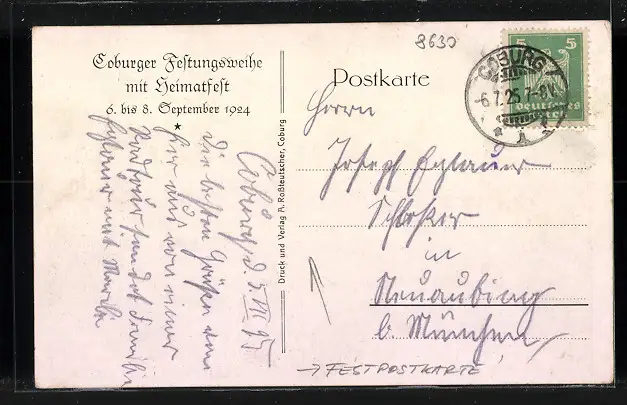 8630
Coburger Festungsweihe
mit Heimatfest
6. bis 8. September 1924
Postkarte
5 5
COBURG 1
-6.7.25.7-8V.
Deutsches
Reich
Druck und Verlag A. Roßteutscher, Coburg
Coburg, d. 5. VII 25
Die besten Grüße von
hier aus von einer
Radtour sendet Familie
und
Herrn
Joseph
Schlosser
in
Neuaubing
b. München
→ FESTPOSTKARTE